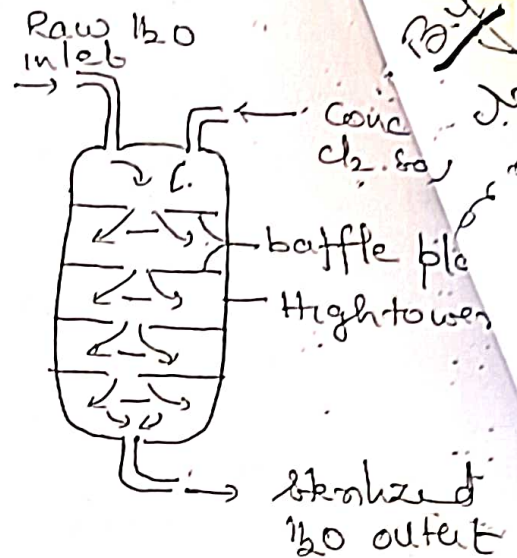 Raw H2O
inlet
Conc
Cl2. So
baffle pla
High tower
Sterilized
H2O outlet